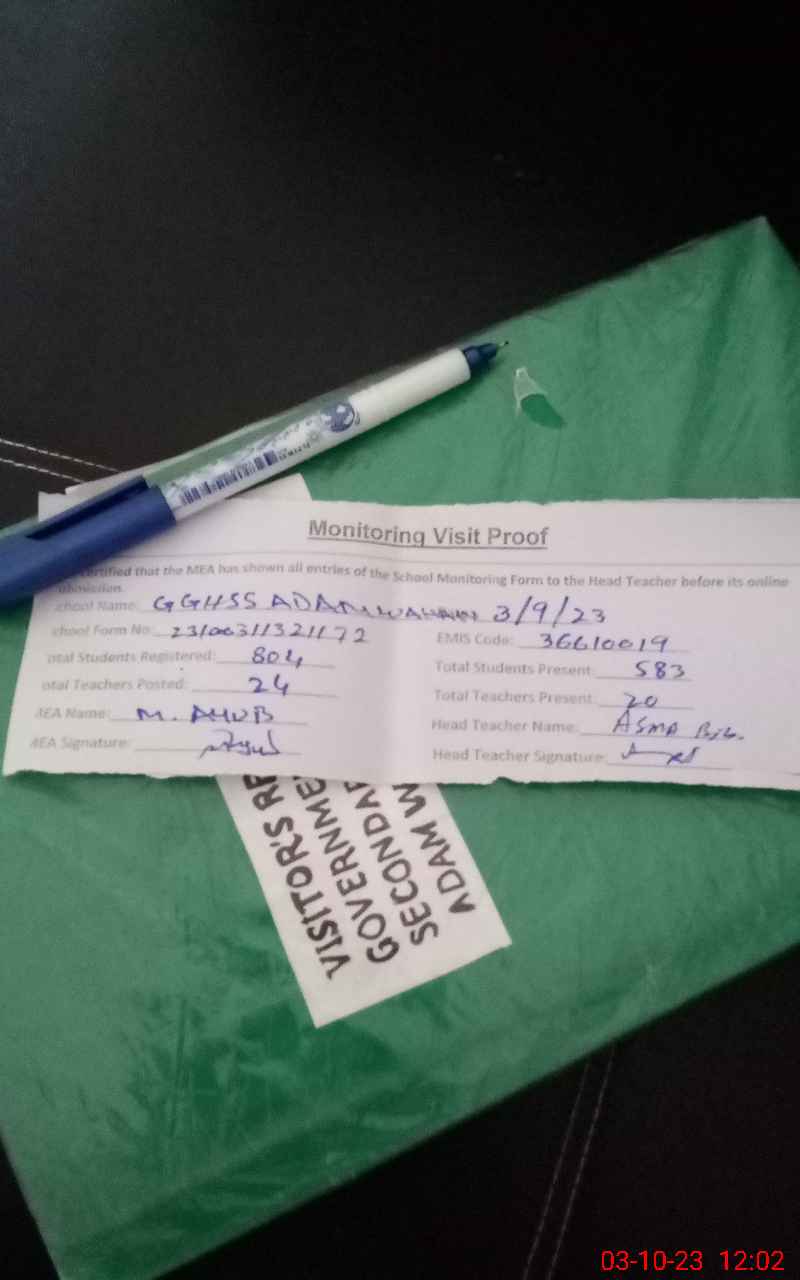 Monitoring Visit Proof
certified that the MEA has shown all entries of the School Monitoring Form to the Head Teacher before its online
chool Name: GGHSS ADAMWAHAN 3/9/23
chool Form No: EMIS Code: 36610019
otal Students Registered: 804 Total Students Present: 583
otal Teachers Posted: 24 Total Teachers Present: 20
MEA Name: M. Head Teacher Name: ASMA Bib.
MEA Signature: Head Teacher Signature:
VISITOR'S RE
GOVERNME
SECONDAR
ADAM W
03-10-23 12:02